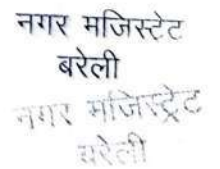 नगर मजिस्ट्रेट
बरेली
नगर मजिस्ट्रेट
बरेली